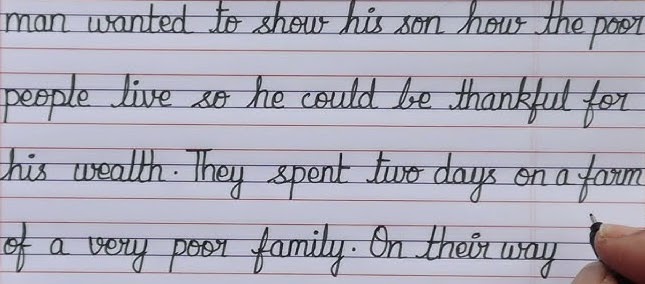 man wanted to show his son how the poor
people live so he could be thankful for
his wealth. They spent two days on a farm
of a very poor family. On their way